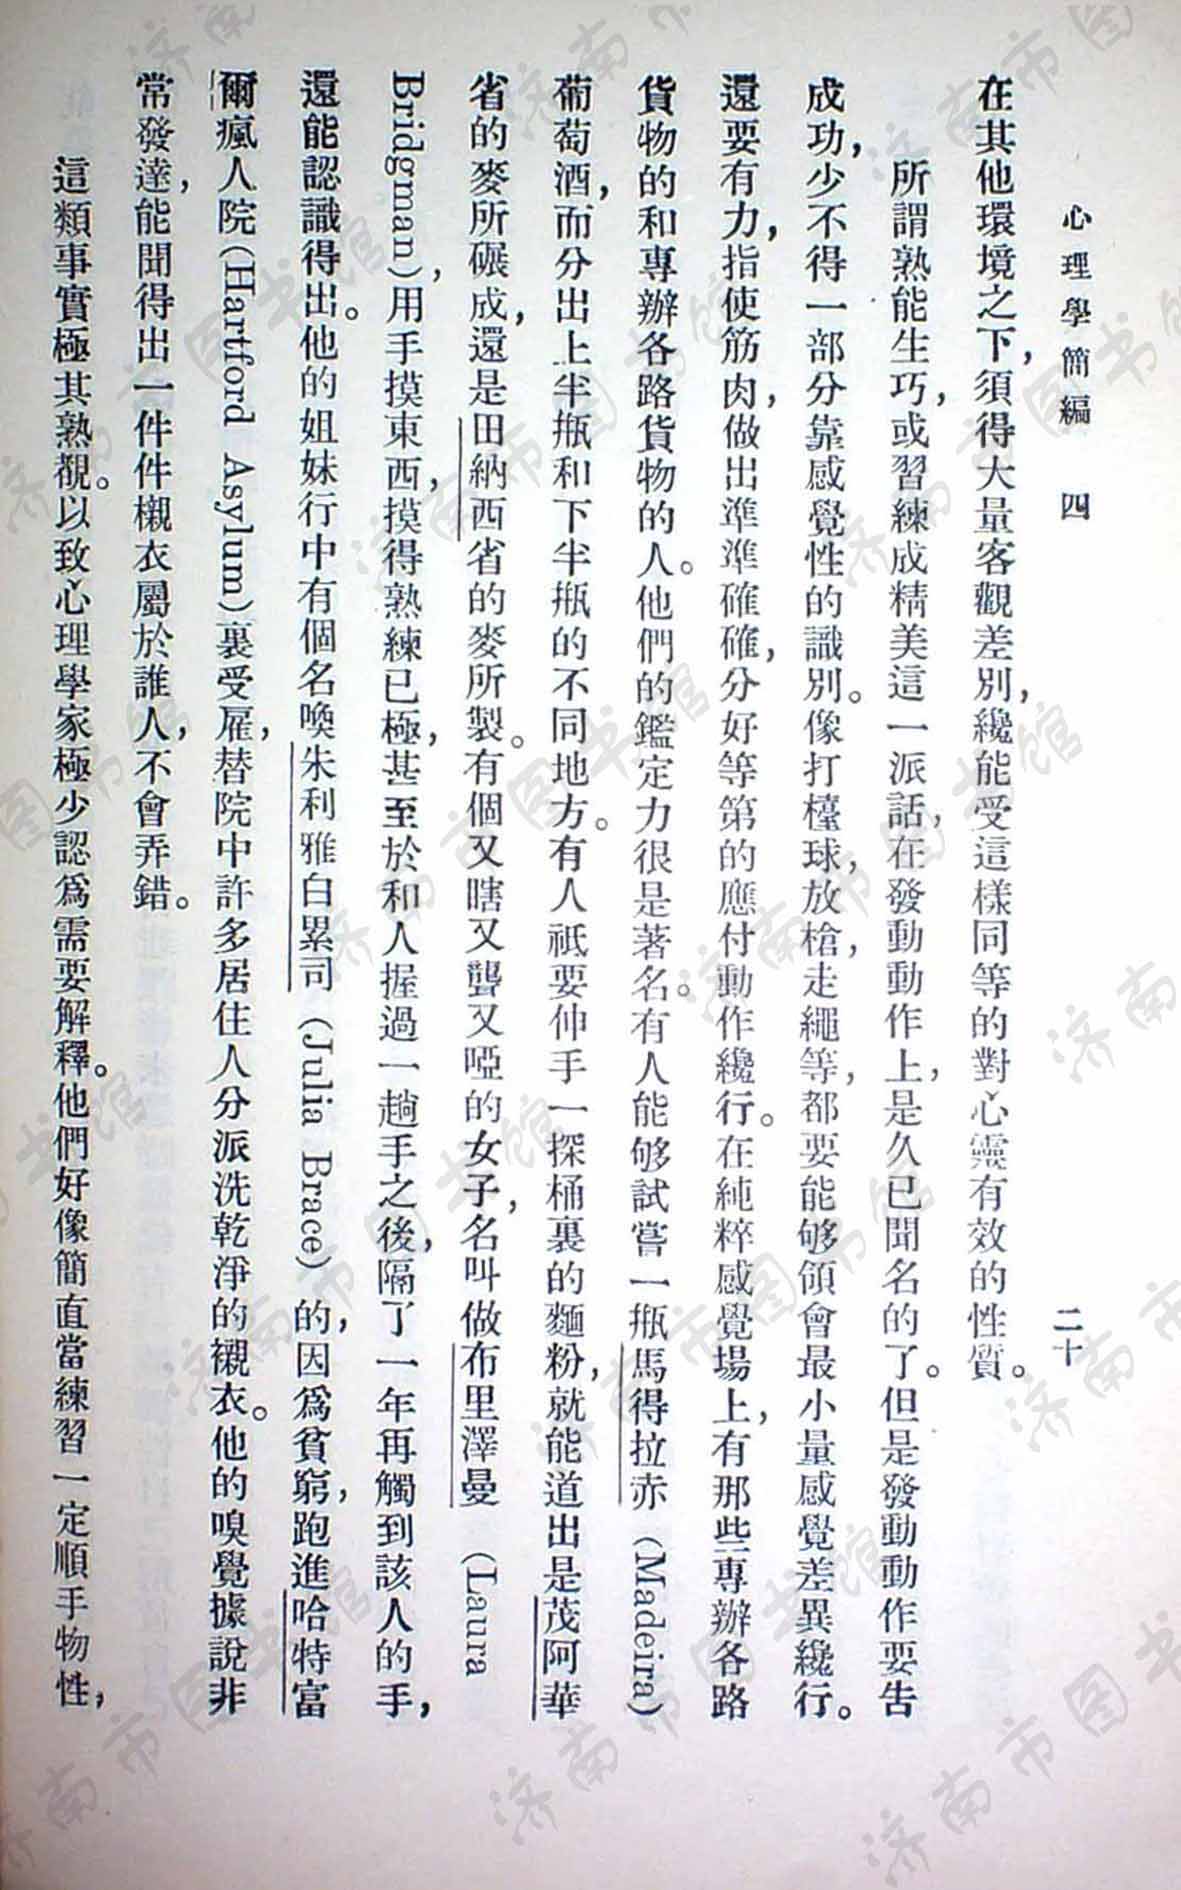 心理學簡編　四　二十
在其他環境之下，須得大量客觀差別，纔能受這樣同等的對心靈有效的性質。
所謂熟能生巧，或習練成精美這一派話，在發動動作上，是久已聞名的了。但是發動動作要告
成功，少不得一部分靠感覺性的識別。像打檯球，放槍，走繩等，都要能够領會最小量感覺差異纔行。
還要有力，指使筋肉，做出準準確確，分好等第的應付動作纔行。在純粹感覺場上，有那些專辦各路
貨物的和專辦各路貨物的人。他們的鑑定力很是著名。有人能够試嘗一瓶馬得拉赤（Madeira）
葡萄酒，而分出上半瓶和下半瓶的不同地方。有人祇要伸手一探桶裏的麵粉，就能道出是茂阿華
省的麥所碾成，還是田納西省的麥所製。有個又瞎又聾又啞的女子，名叫做布里澤曼（Laura
Bridgman），用手摸東西，摸得熟練已極，甚至於和人握過一趟手之後，隔了一年再觸到該人的手，
還能認識得出。他的姐妹行中有個名喚朱利雅白累司（Julia Brace）的，因爲貧窮，跑進哈特富
爾瘋人院（Hartford Asylum）裏受雇，替院中許多居住人分派洗乾淨的襯衣。他的嗅覺據說非
常發達，能聞得出一件件襯衣屬於誰人，不會弄錯。
這類事實極其熟覩。以致心理學家極少認爲需要解釋。他們好像簡直當練習一定順手物性，
济南市图书馆